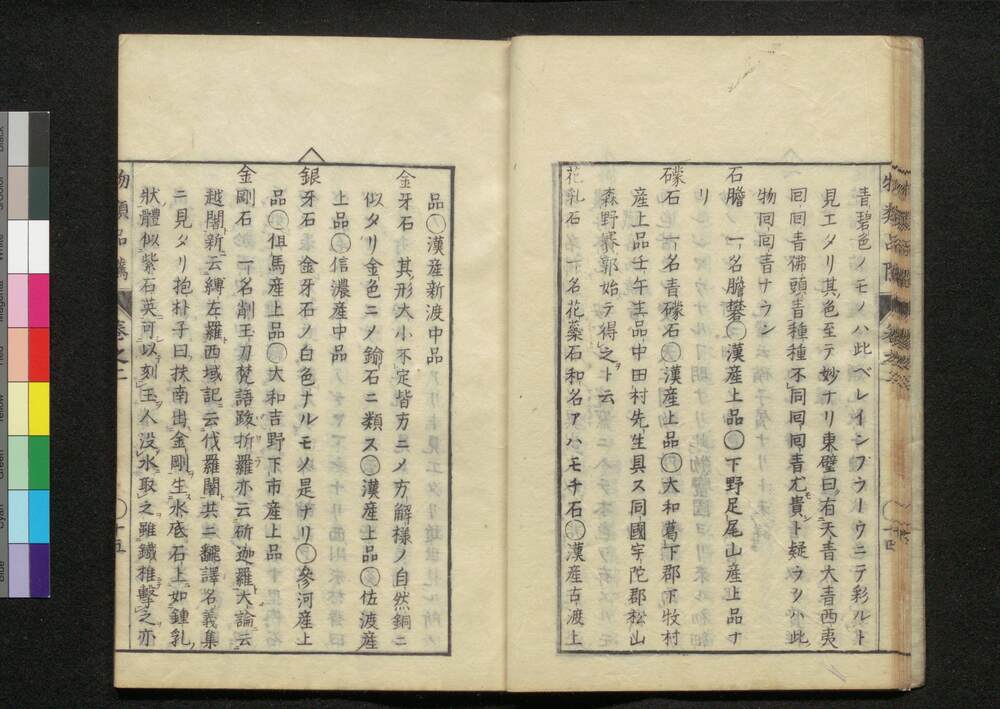 青碧色ノモノハ此ベレインブラーウニテ彩ルト
見エタリ其色至テ妙ナリ東璧曰有天青大青西夷
囘囘青佛頭青種種不同囘囘青尤貴ト疑ラクハ此
物囘囘青ナラン
石膽 一名膽礬 漢産上品 下野足尾山産上品ナ
リ
礞石 一名青礞石 漢産上品 大和葛下郡下牧村
産上品壬午主品中田村先生具ス同國宇陀郡松山
森野賽郭始テ得之ト云
花乳石 一名花蘂石和名アハモチ石 漢産古渡上
品 漢産新渡中品
金牙石 其形大小不定皆方ニメ方解様ノ自然銅ニ
似タリ金色ニメ鍮石ニ類ス 漢産上品 佐渡産
上品 信濃産中品
銀牙石 金牙石ノ白色ナルモノ是ナリ 參河産上
品 但馬産上品 大和吉野下市産上品
金剛石 一名削玉刀梵語跋折羅亦云斫迦羅大論云
越闍新云縛左羅西域記云伐羅闍共ニ飜譯名義集
ニ見タリ抱朴子曰扶南出金剛生水底石上如鍾乳
狀體似紫石英可以刻玉人没水取之雖鐵椎擊之亦
物類品隲 卷之二
十五